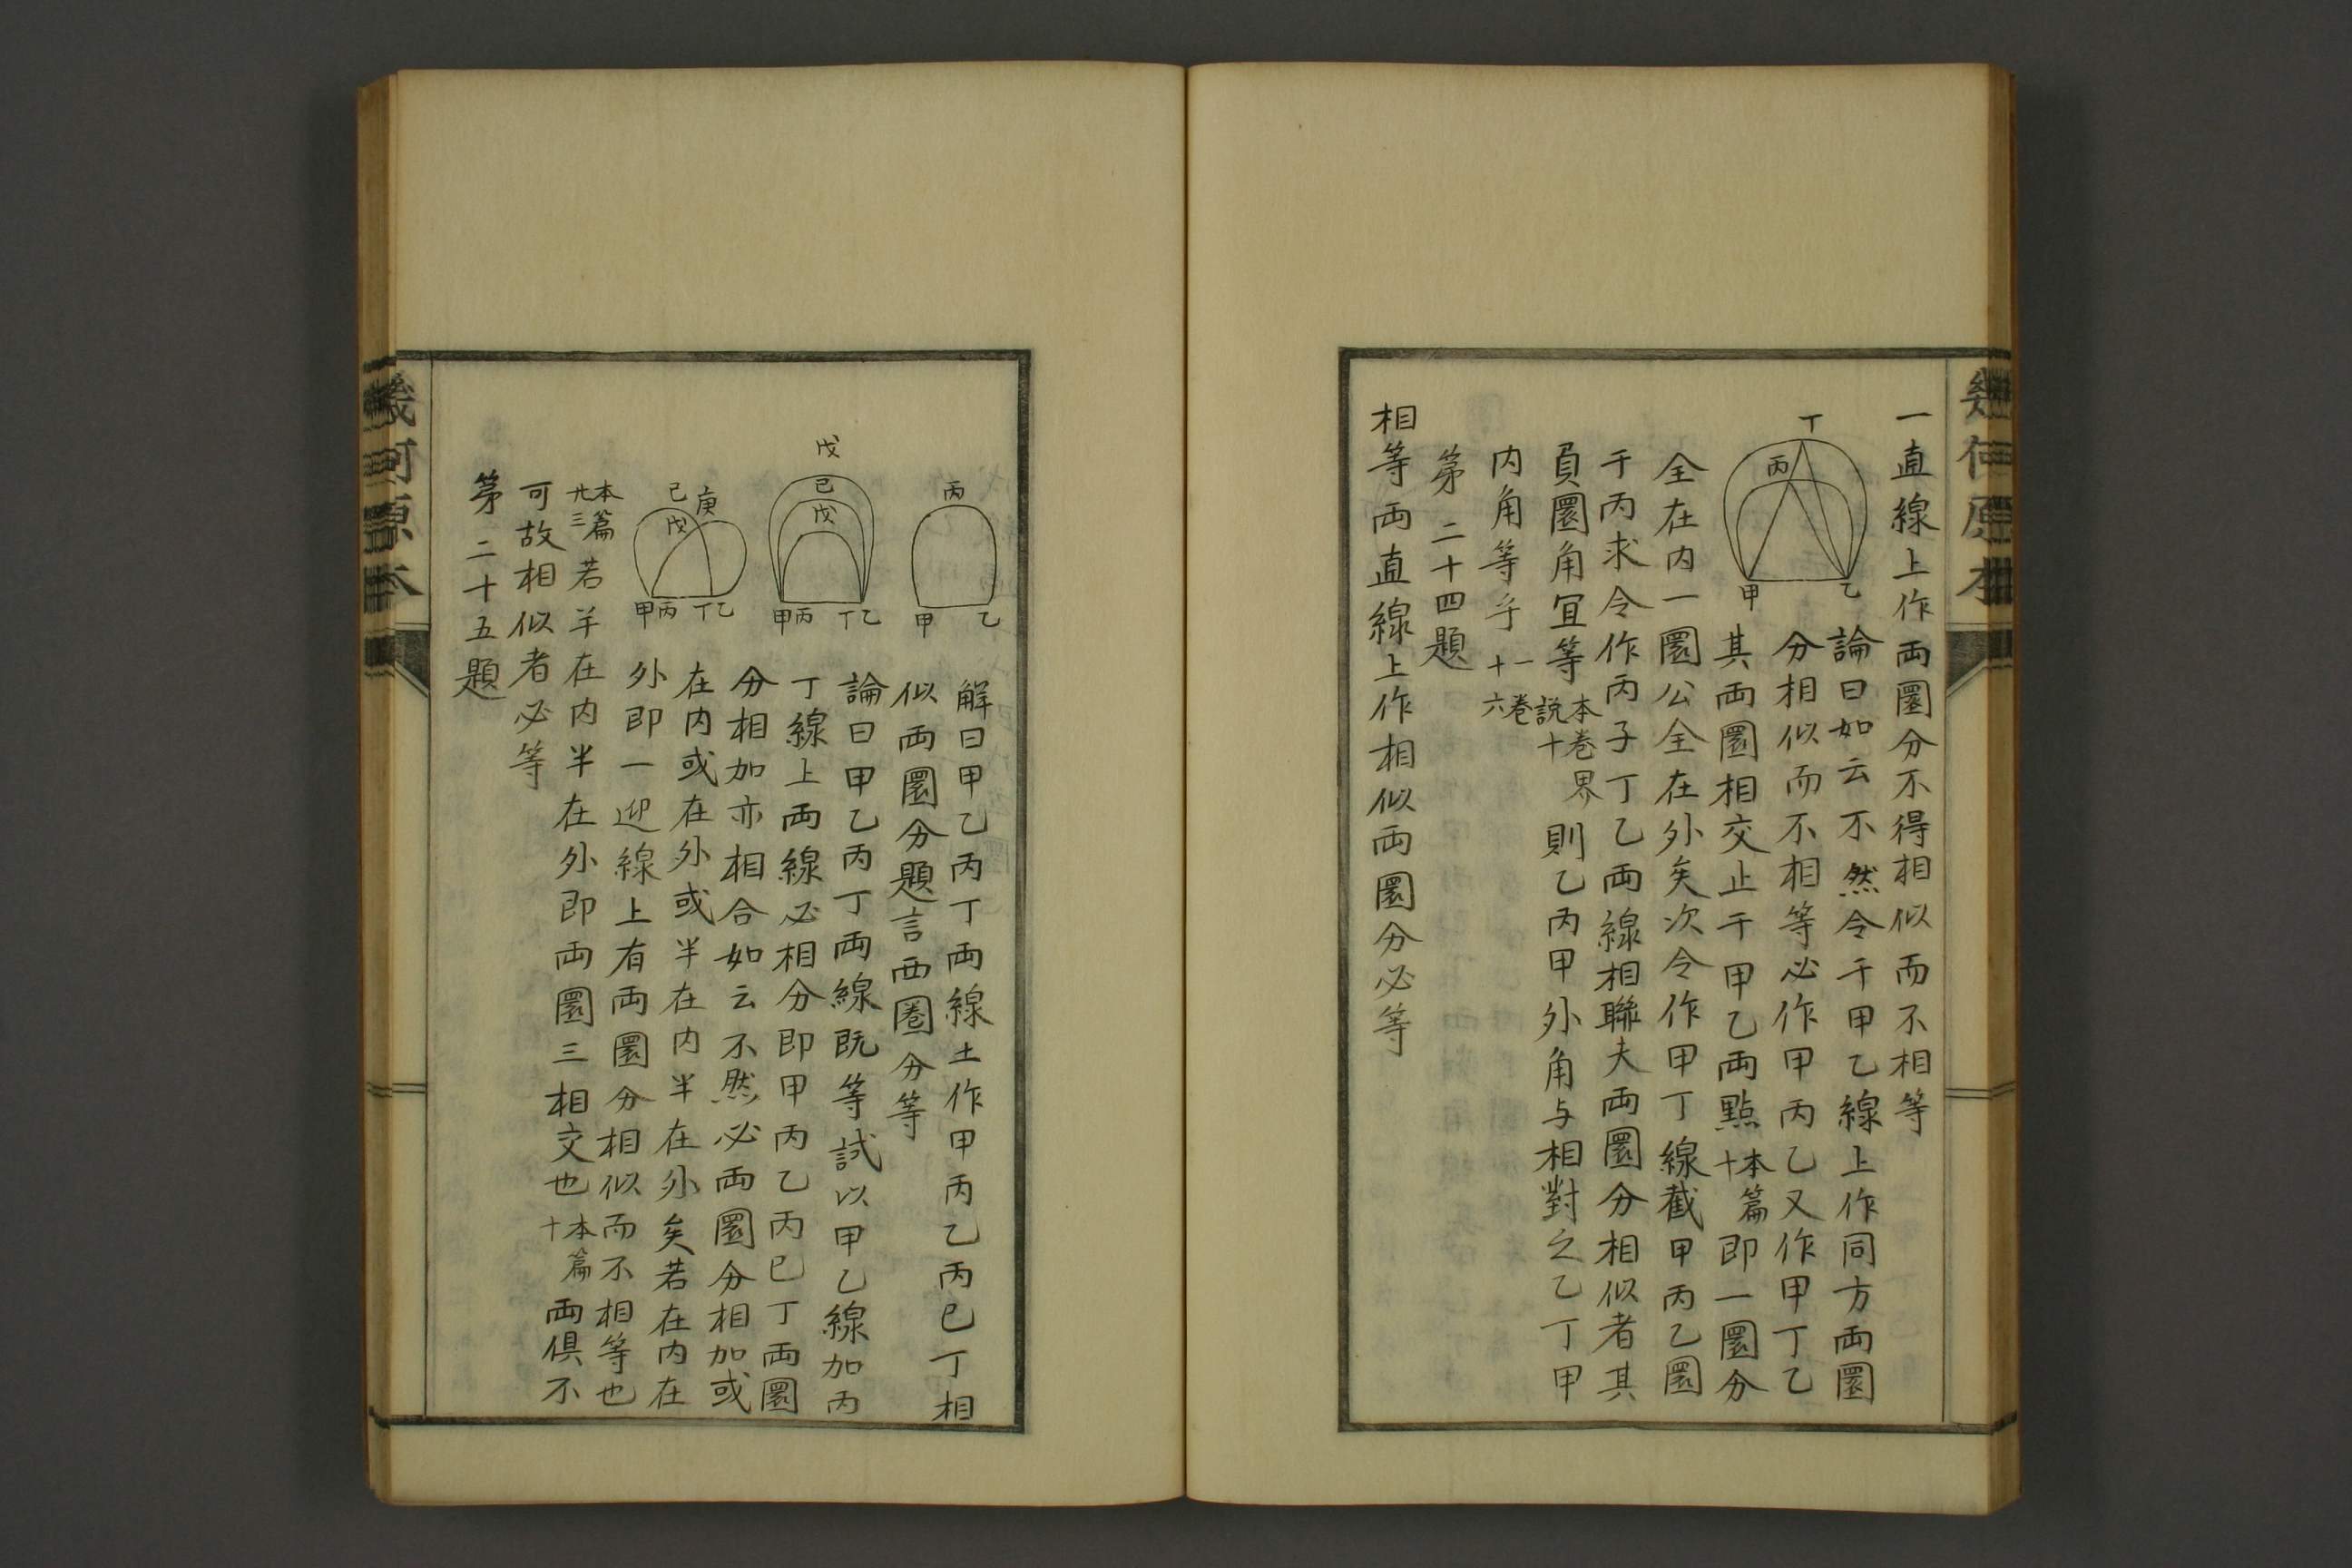 幾何原本
一直線上作両圜分不得相似而不相等
丁
丙
甲
乙
論曰如云不然令于甲乙線上作同方両圜
分相似而不相等必作甲丙乙又作甲丁乙
其両圜相交止于甲乙両點本篇十即一圜分
全在内一圜公全在外矣次令作甲丁線截甲丙乙圜
于丙求令作丙子丁乙両線相聯夫両圜分相似者其
負圜角宜等本卷界説十則乙丙甲外角与相對之乙丁甲
内角等乎一卷十六
第二十四題
相等両直線上作相似両圜分必等
丙
甲
乙
解曰甲乙丙丁両線土作甲丙乙丙已丁相
似両圜分題言西圈分等
戊
已
戊
甲丙
丁乙
論曰甲乙丙丁両線既等試以甲乙線加丙
丁線上両線必相分即甲丙乙丙已丁両圜
分相加亦相合如云不然必両圜分相加或
在内或在外或半在内半在外矣若在内在
已
庚
戊
甲丙
丁乙
外即一迎線上有両圜分相似而不相等也
本篇廿三若羊在内半在外即両圜三相交也本篇十両俱不
可故相似者必等
第二十五題
幾何原本